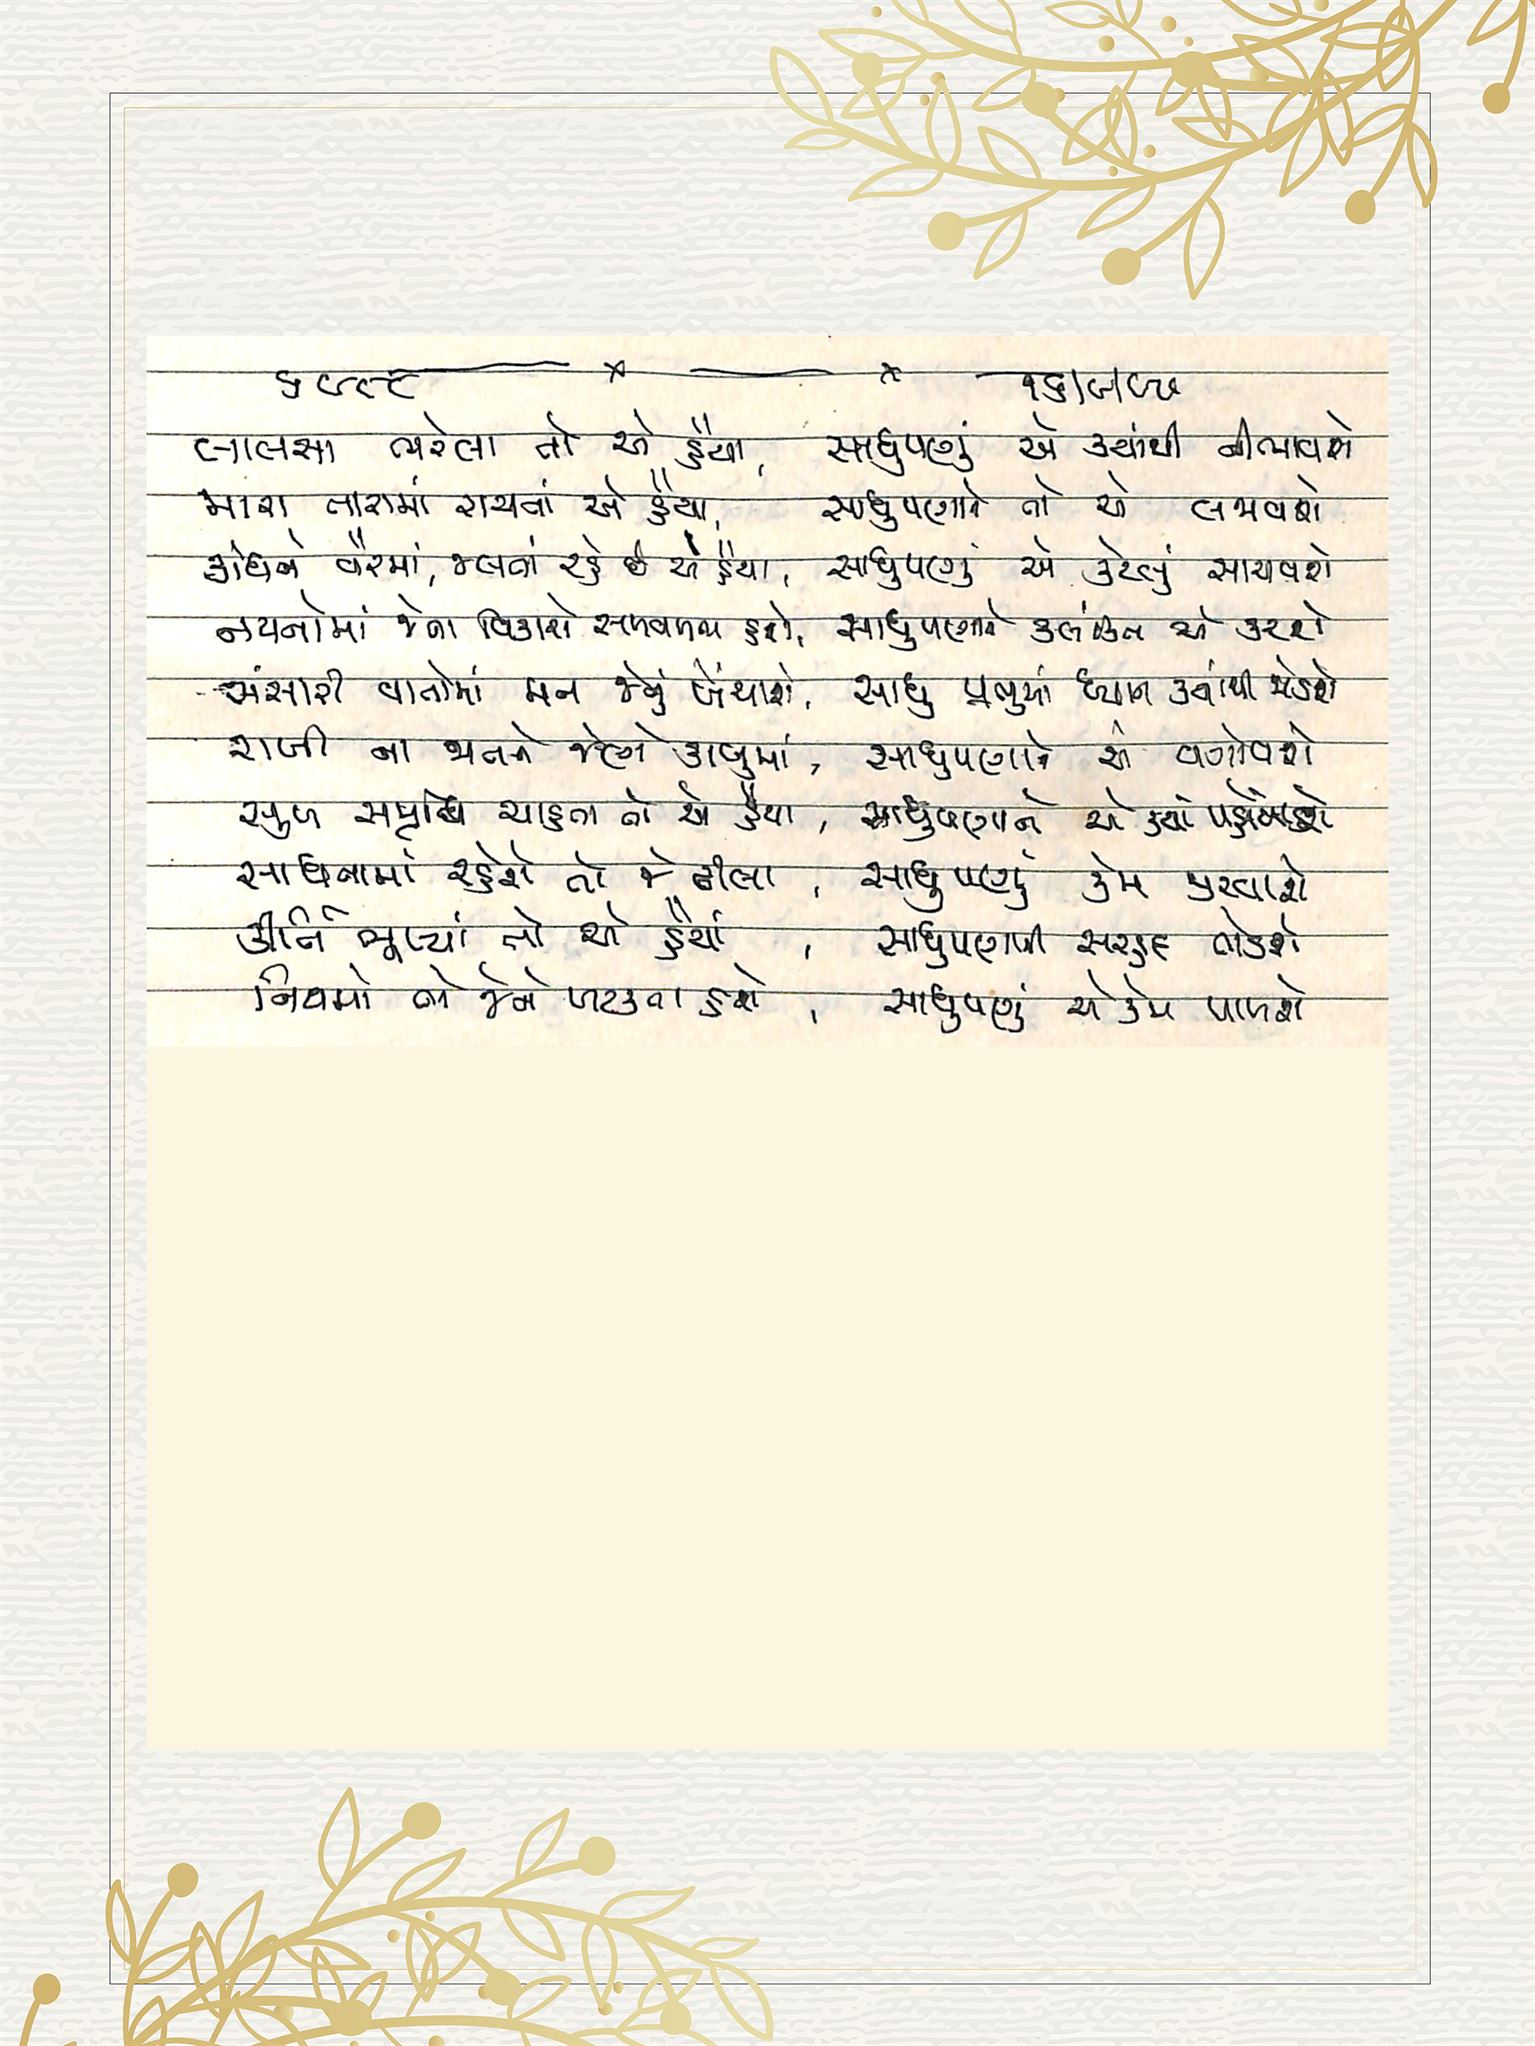 લાલસા ભરેલા તો એ હૈયા, સાધુપણું એ ક્યાંથી નીભાવશે
મારા તારામાં રાચતાં એ હૈયા, સાધુપણાને તો એ લજાવશે
ક્રોધને વૈરમાં, જલતાં રહે છે એ હૈયા, સાધુપણું એ કેટલું સાચવશે
નયનોમાં જેના વિકારો સળવળતા હશે, સાધુપણાને કલંકિત એ કરશે
સંસારી વાતોમાં મન જેનું ખેંચાશે, સાધુ પ્રભુમાં ધ્યાન ક્યાંથી જોડશે
રાખી ના મનને જેણે કાબુમાં, સાધુપણાને એ વગોવશે
સુખ સમૃદ્ધિ ચાહતા તો એ હૈયા, સાધુપણાને એ ક્યાં પહોંચાડશે
સાધનામાં રહેશે તો જે ઢીલા, સાધુપણું કેમ પુરવાશે
કીર્તિ ભૂખ્યાં તો એ હૈયાં, સાધુપણાની સરહદ તોડશે
નિયમો તો જેને ખટકતા હશે, સાધુપણું એ કેમ પાળશે